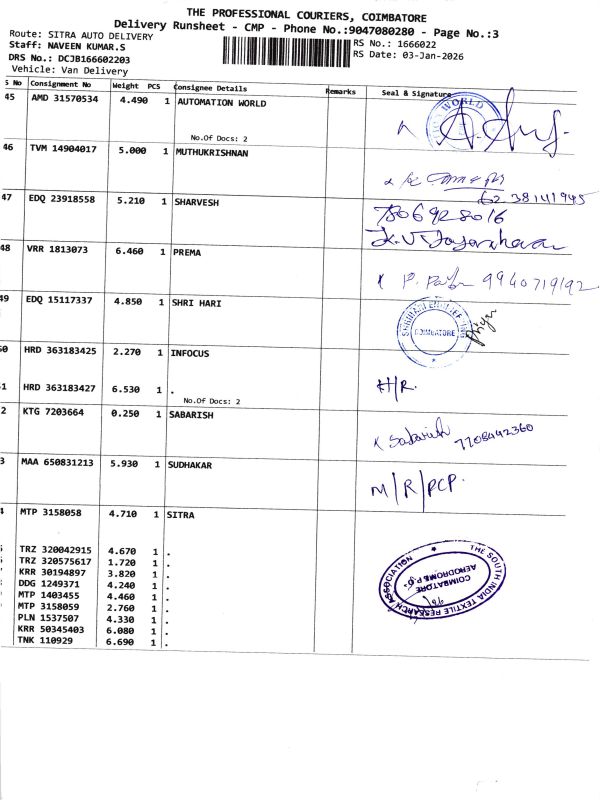 THE PROFESSIONAL COURIERS, COIMBATORE
Delivery Runsheet - CMP - Phone No.:9047080280 - Page No.:3
Route: SITRA AUTO DELIVERY
Staff: NAVEEN KUMAR.S
RS No.: 1666022
DRS No.: DCJB166602203
RS Date: 03-Jan-2026
Vehicle: Van Delivery
S No Consignment No Weight PCS Consignee Details Remarks Seal & Signature
45 AMD 31570534 4.490 1 AUTOMATION WORLD
WORLD
No.Of Docs: 2
46 TVM 14904017 5.000 1 MUTHUKRISHNAN
62 38141945
47 EDQ 23918558 5.210 1 SHARVESH
48 VRR 1813073 6.460 1 PREMA
9940719192
49 EDQ 15117337 4.850 1 SHRI HARI
COIMBATORE
50 HRD 363183425 2.270 1 INFOCUS
51 HRD 363183427 6.530 1 .
H/R.
No.Of Docs: 2
2 KTG 7203664 0.250 1 SABARISH
Sabarish 7708442360
3 MAA 650831213 5.930 1 SUDHAKAR
M/R/PCP.
4 MTP 3158058 4.710 1 SITRA
TRZ 320042915 4.670 1 .
TRZ 320575617 1.720 1 .
KRR 30194897 3.820 1 .
DDG 1249371 4.240 1 .
MTP 1403455 4.460 1 .
MTP 3158059 2.760 1 .
PLN 1537507 4.330 1 .
KRR 50345403 6.080 1 .
TNK 110929 6.690 1 .
THE SOUTH INDIA TEXTILE RESEARCH ASSOCIATION
COIMBATORE
AERODROME P.O.